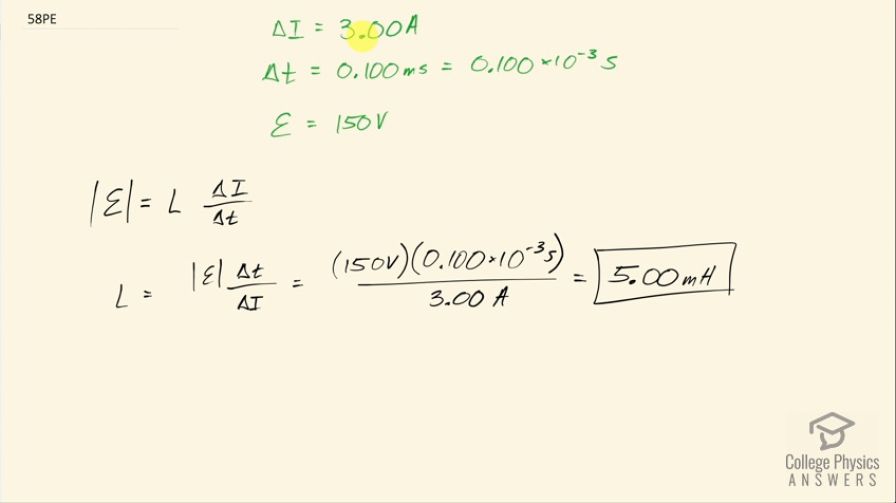 58PE
ΔI = 3.00A
Δt = 0.100ms = 0.100×10⁻³ s
ε = 150V
|ε| = L ΔI/Δt
L = |ε| Δt/ΔI = (150V)(0.100×10⁻³s)/3.00 A = 5.00mH
College Physics
ANSWERS